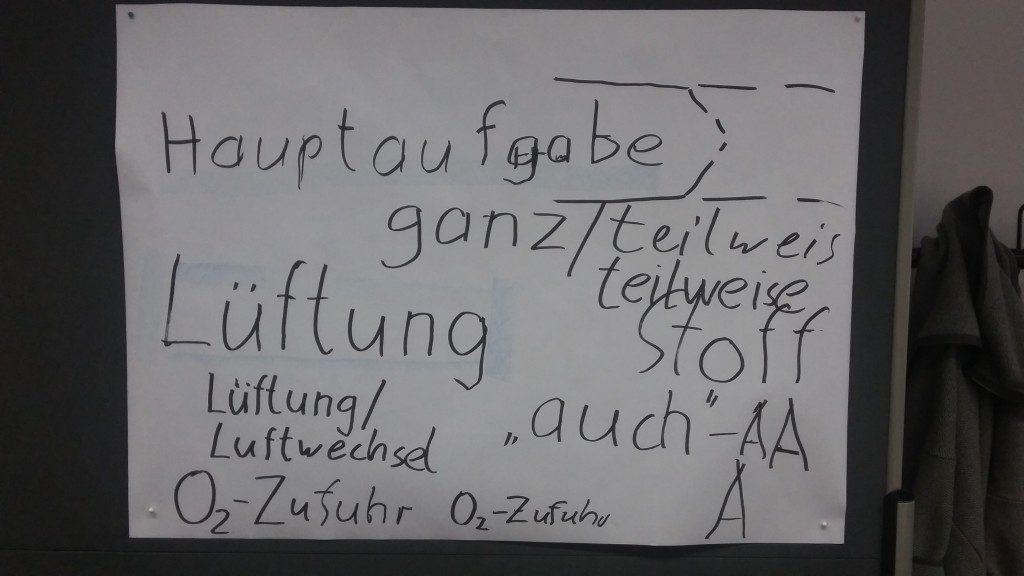 Hauptaufgabe
ganz/teilweis
teilweise
Lüftung
Stoff
Lüftung/
Luftwechsel
„auch“-AA
A
O₂-Zufuhr O₂-Zufuhr